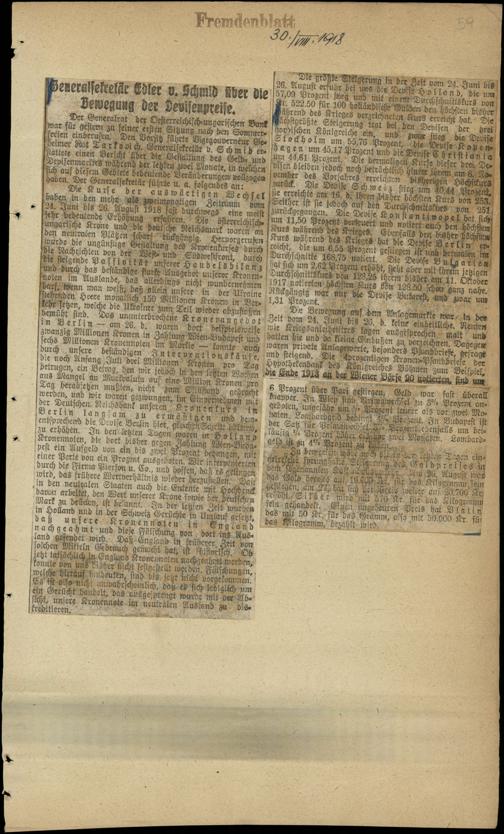 Fremdenblatt
59
30./VIII. 1918
Generalsekretär Edler v. Schmid über die
Bewegung der Devisenpreise.
Der Generalrat der Oesterreichisch-ungarischen Bank
war für gestern zu seiner ersten Sitzung nach den Sommer-
ferien einberufen. Den Vorsitz führte Vizegouverneur Ge-
heimer Rat Tarkovich. Generalsekretär v. Schmid er-
stattete einen Bericht über die Gestaltung des Geld- und
Devisenmarktes während der letzten zwei Monate, in welchen
sich auf diesem Gebiete bedeutende Veränderungen vollzogen
haben. Der Generalsekretär führte u. a. folgendes an:
Die Kurse der auswärtigen Wechsel
haben in dem mehr als zweimonatigen Zeitraum vom
24. Juni bis 26. August 1918 fast durchwegs eine meist
sehr bedeutende Erhöhung erfahren. Die österreichisch-
ungarische Krone und die deutsche Reichsmark waren auf
den neutralen Plätzen scharf rückgängig. Hervorgerufen
wurde die ungünstige Gestaltung des Kronenkurses durch
die Nachrichten von der West- und Südwestfront, durch
die steigende Passivität unserer Handelsbilanz
und durch das beständige starke Ausgebot unserer Kronen-
noten im Auslande, das allerdings nicht wundernehmen
darf, wenn man weiß, daß allein unsere in der Ukraine
stehenden Heere monatlich 150 Millionen Kronen in Ver-
kehr setzen, welche die Ukrainer zum Teil wieder abzustoßen
bemüht sind. Das ununterbrochene Kronenangebot
in Berlin — am 26. d. waren dort beispielsweise
zwanzig Millionen Kronen in Zahlung Wien-Budapest und
sechs Millionen Kronennoten am Markte — konnte auch
durch unsere beständigen Interventionskäufe,
die noch Anfang Juli drei Millionen Kronen pro Tag
betrugen, ein Betrag, den wir jedoch in der letzten Zeit
aus Mangel an Markvaluta auf eine Million Kronen pro
Tag herabsetzen mußten, nicht zum Stillstand gebracht
werden, und wir waren gezwungen, im Einvernehmen mit
der Deutschen Reichsbank unseren Kronenkurs in
Berlin langsam zu ermäßigen und dem-
entsprechend die Devise Berlin hier, gleichfalls schrittweise,
zu erhöhen. In den letzten Tagen waren in Holland
Kronennoten, die dort bisher gegen Zahlung Wien-Buda-
pest ein Aufgeld von ein bis zwei Prozent bedangen, mit
einer Perte von ein Prozent ausgeboten. Wir intervenieren
durch die Firma Pierson u. Co. und hoffen, daß es gelingen
wird, das frühere Wertverhältnis wieder herzustellen. Daß
in den neutralen Staaten auch die Entente mit Hochdruck
daran arbeitet, den Wert unserer Krone sowie der deutschen
Mark zu drücken, ist bekannt. In der letzten Zeit wurden
in Holland und in der Schweiz Gerüchte in Umlauf gesetzt,
daß unsere Kronennoten in England
nachgeahmt und diese Fälschung von dort ins Aus-
land gesendet wird. Daß England in früherer Zeit von
solchen Mitteln Gebrauch gemacht hat, ist historisch. Ob
jetzt tatsächlich in England Kronennoten nachgeahmt werden,
konnte von uns bisher nicht festgestellt werden. Fälschungen,
welche hierauf hindeuten, sind bis jetzt nicht vorgekommen.
Es ist also nicht unwahrscheinlich, daß es sich lediglich um
ein Gerücht handelt, das ausgesprengt wurde mit der Ab-
sicht, unsere Kronennote im neutralen Ausland zu dis-
kreditieren.
Die größte Steigerung in der Zeit vom 24. Juni bis
26. August erfuhr bei uns die Devise Holland, die um
57,09 Prozent stieg und mit einem Durchschnittskurs von
Kr. 522.50 für 100 holländische Gulden den höchsten bisher
während des Krieges verzeichneten Kurs erreicht hat. Die
nächstgrößte Steigerung trat bei den Devisen der drei
nordischen Königreiche ein, und zwar stieg die Devise
Stockholm um 55,76 Prozent, die Devise Kopen-
hagen um 45,17 Prozent und die Devise Christiania
um 44,61 Prozent. Die hiernach sich ergebenden Kurse
bleiben jedoch noch beträchtlich hinter jenem am 6. No-
vember des Vorjahres erreichten bisherigen Höchststand
zurück. Die Devise Schweiz stieg um 40,34 Prozent,
sie erreichte am 16. d. ihren bisher höchsten Kurs von 253.
Seither ist sie jedoch auf den Durchschnittskurs von 251
zurückgegangen. Die Devise Konstantinopel hat sich
um 11,50 Prozent verteuert und notiert auch den höchsten
Kurs während des Krieges. Ebenfalls den bisher höchsten
Kurs während des Krieges hat die Devise Berlin er-
reicht, die um 6,55 Prozent gestiegen ist und derzeit im
Durchschnitte 168.75 notiert. Die Devise Bulgarien
hat sich um 2,62 Prozent erhöht, steht aber mit ihrem jetzigen
Durchschnittskurs von 127.25 ihrem bisher am 11. Oktober
1917 notierten höchsten Kurs von 128.50 nicht ganz nahe.
Rückgängig war nur die Devise Bukarest, und zwar um
1,31 Prozent.
Die Bewegung auf dem Anlagemarkte war, in der
Zeit vom 24. Juni bis 26. d. keine einheitliche. Renten
wie Kriegsanleihetitres lagen ausgesprochen matt und
hatten bis auf kleine Einbußen zu verzeichnen. Dagegen
waren private Anlagewerte, besonders Pfandbriefe, gefragt
und steigend. Die vierprozentigen Kronen-Pfandbriefe der
Hypothekenbank des Königreiches Böhmen zum Beispiel,
die Ende 1913 an der Wiener Börse 90 notierten, sind um
6 Prozent über Pari gestiegen. Geld war fast überall
Lombard-
geld zu 4¼ Prozent
Goldpreises